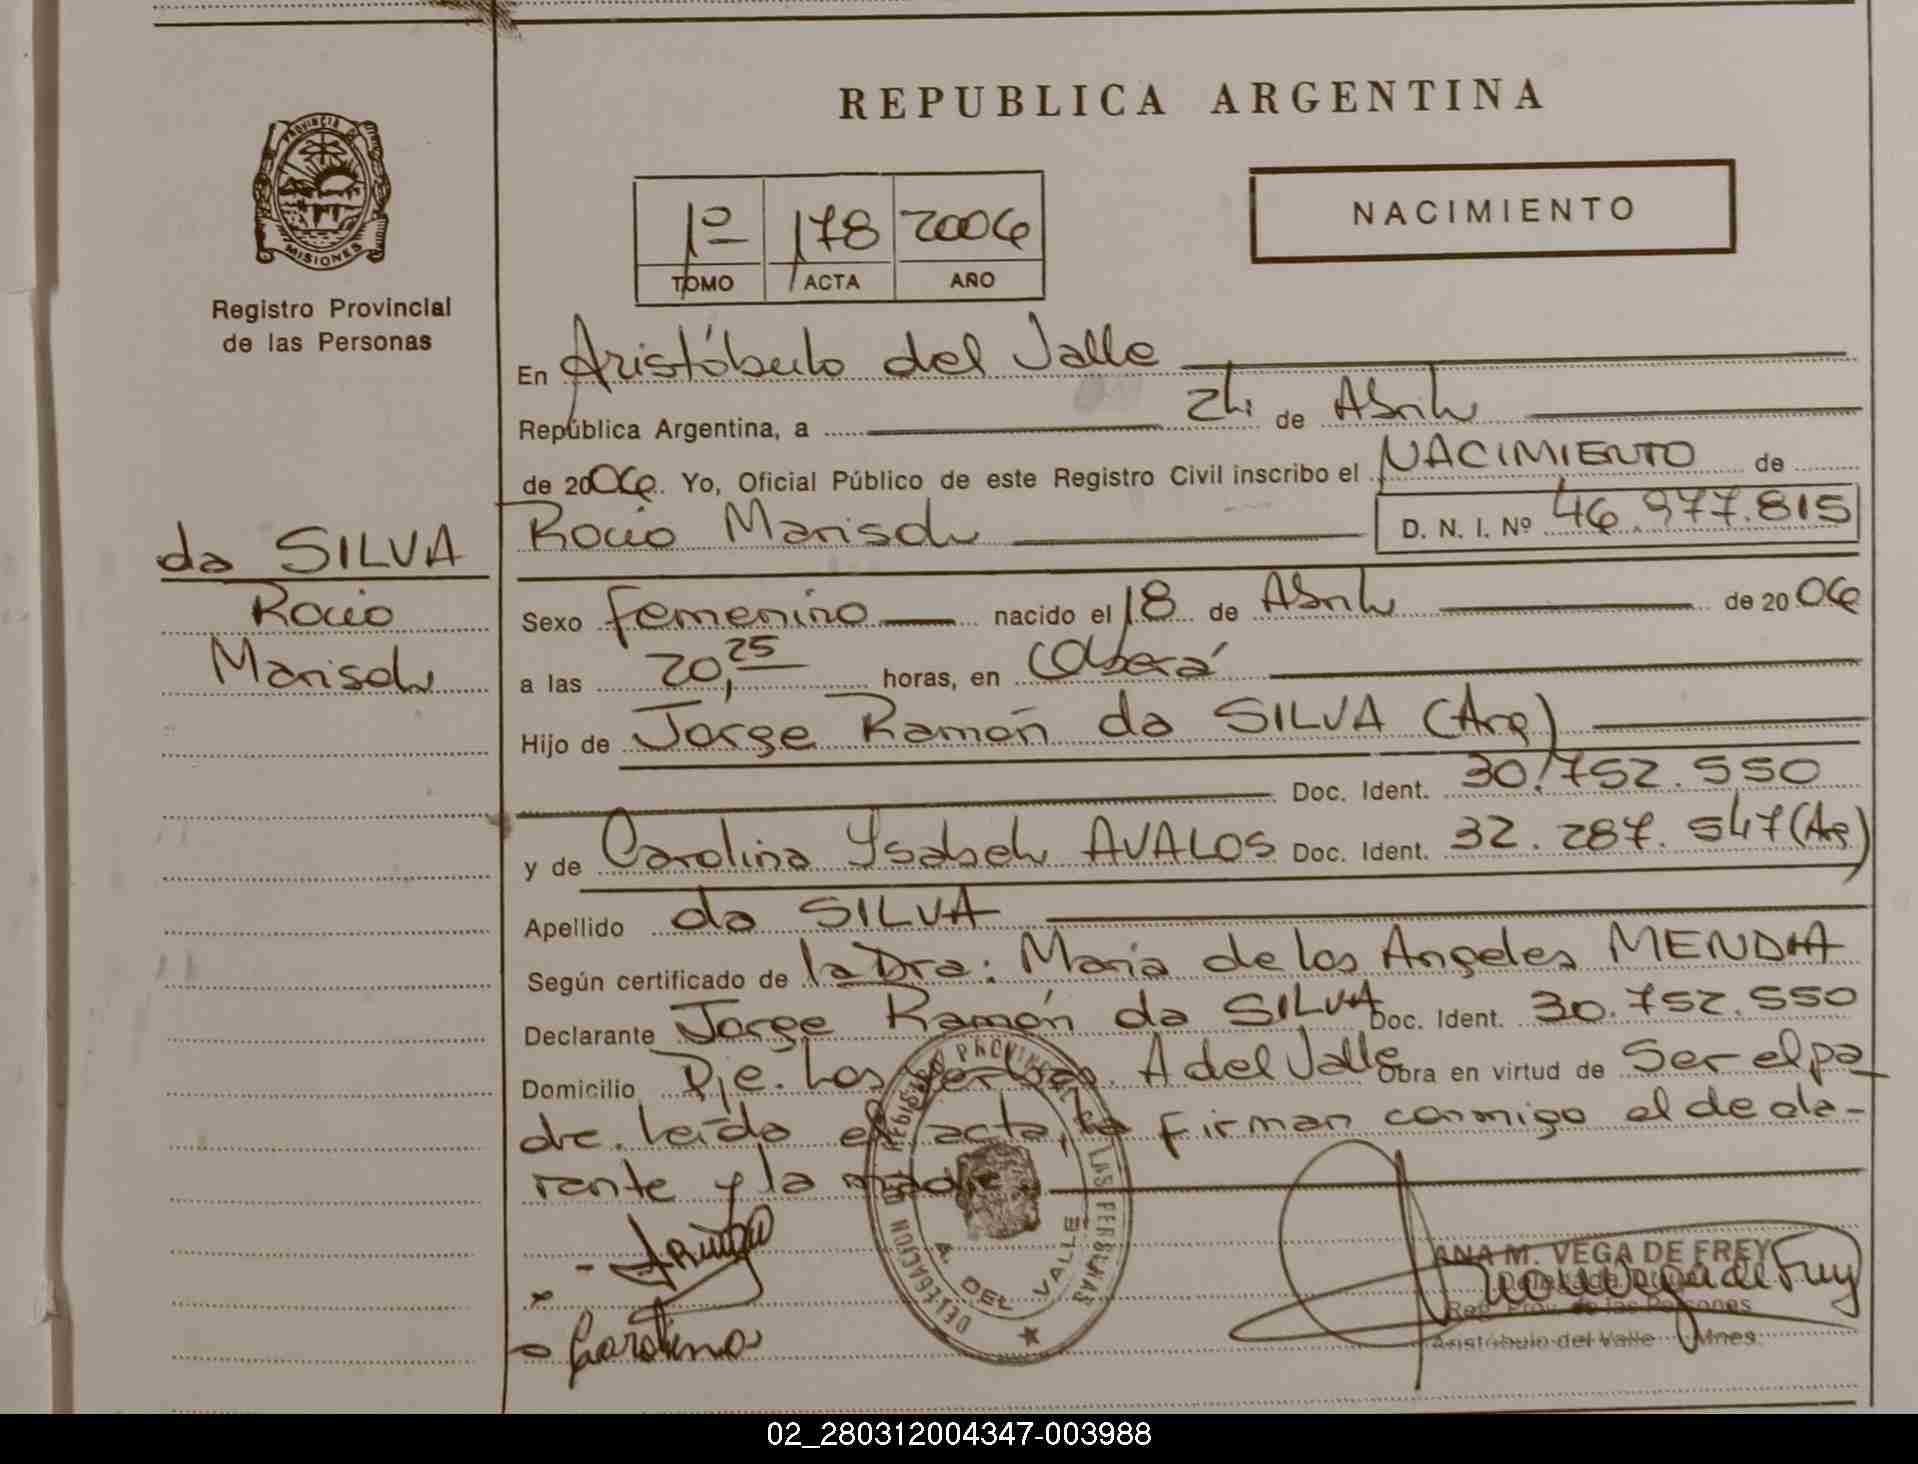 REPUBLICA ARGENTINA
PROVINCIA DE
MISIONES
Registro Provincial
de las Personas
1º 178 2006
TOMO ACTA AÑO
NACIMIENTO
En Aristóbulo del Valle
República Argentina, a 24 de Abril
de 2006. Yo, Oficial Público de este Registro Civil inscribo el NACIMIENTO de
Rocio Marisol D. N. I. Nº 46.977.815
da SILVA
Rocio
Marisol
Sexo femenino nacido el 18 de Abril de 2006
a las 20,25 horas, en Oberá
Hijo de Jorge Ramón da SILVA (Arg)
Doc. Ident. 30.752.550
y de Carolina Ysabel AVALOS Doc. Ident. 32.287.547 (Arg)
Apellido da SILVA
Según certificado de la Dra: Maria de los Angeles MENDIA
Declarante Jorge Ramón da SILVA Doc. Ident. 30.752.550
Domicilio Pje. Los A del Valle Obra en virtud de Ser el pa
dre. Leída el acta, la firman conmigo el decla-
rante y la madre
REGISTRO PROVINCIAL DE LAS PERSONAS
DELEGACION
A. DEL VALLE
Carolina
ANA M. VEGA DE FREY
Reg. Prov. de las Personas
Aristóbulo del Valle Mnes.
02_280312004347-003988